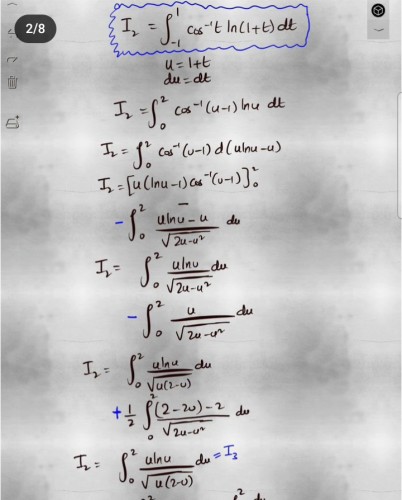 2/8
I₂ = ∫₋₁¹ cos⁻¹t ln(1+t) dt
u = 1+t
du = dt
I₂ = ∫₀² cos⁻¹(u-1) lnu dt
I₂ = ∫₀² cos⁻¹(u-1) d(ulnu-u)
I₂ = [u(lnu-1) cos⁻¹(u-1)]₀²
- ∫₀² (ulnu - u)/√(2u-u²) du
I₂ = ∫₀² ulnu/√(2u-u²) du
- ∫₀² u/√(2u-u²) du
I₂ = ∫₀² ulnu/√(u(2-u)) du
+ 1/2 ∫₀² ((2-2u)-2)/√(2u-u²) du
I₂ = ∫₀² ulnu/√(u(2-u)) du = I₃